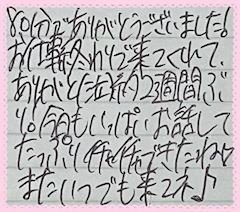 80分でありがとうございました!
お仕事終わりで来てくれて、
ありがと(泣)約2週間ぶ
り!今日もいっぱいお話して
たっぷりイチャイチャできたね♡
またいつでも来てネ♪